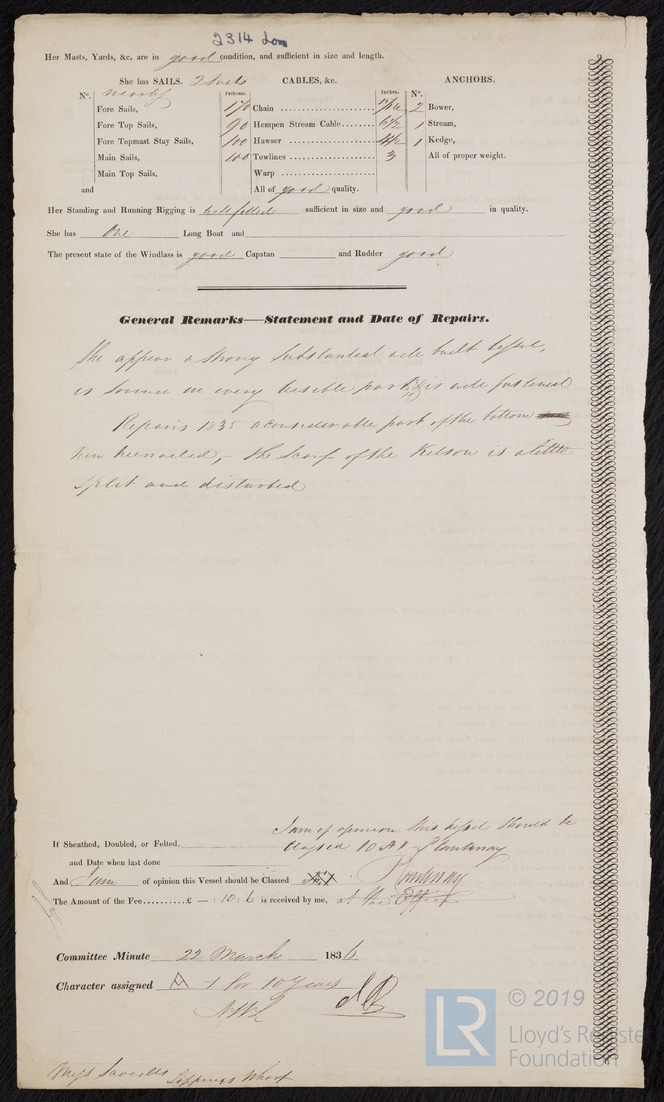 2314 Lon
Her Masts, Yards, &c. are in good condition, and sufficient in size and length.
She has SAILS. 2 Suits CABLES, &c. ANCHORS.
Nº. nearly Fathoms. Inches. Nº.
Fore Sails, 170 Chain 2 Bower,
Fore Top Sails, 90 Hempen Stream Cable 6½ 1 Stream,
Fore Topmast Stay Sails, 100 Hawser 4½ 1 Kedge,
Main Sails, 100 Towlines 3 All of proper weight.
Main Top Sails, Warp
and All of good quality.
Her Standing and Running Rigging is well fitted sufficient in size and good in quality.
She has One Long Boat and
The present state of the Windlass is good Capstan and Rudder good
General Remarks—Statement and Date of Repairs.
She appears a strong substantial well built vessel,
is sound in every visible part & is well fastened
Repairs 1835 a considerable part of the bottom
new treenailed, - the Scarf of the Kelson is a little
split and disturbed
I am of opinion this vessel should be
If Sheathed, Doubled, or Felted. Classed 10 A1
and Date when last done
And I am of opinion this Vessel should be Classed
The Amount of the Fee..........£ — : 10 : 6 is received by me, at the Office
Committee Minute 22 March 1836
Character assigned A 1 for 10 Years
© 2019
LR
Lloyd's Registe
Foundation
Wharf